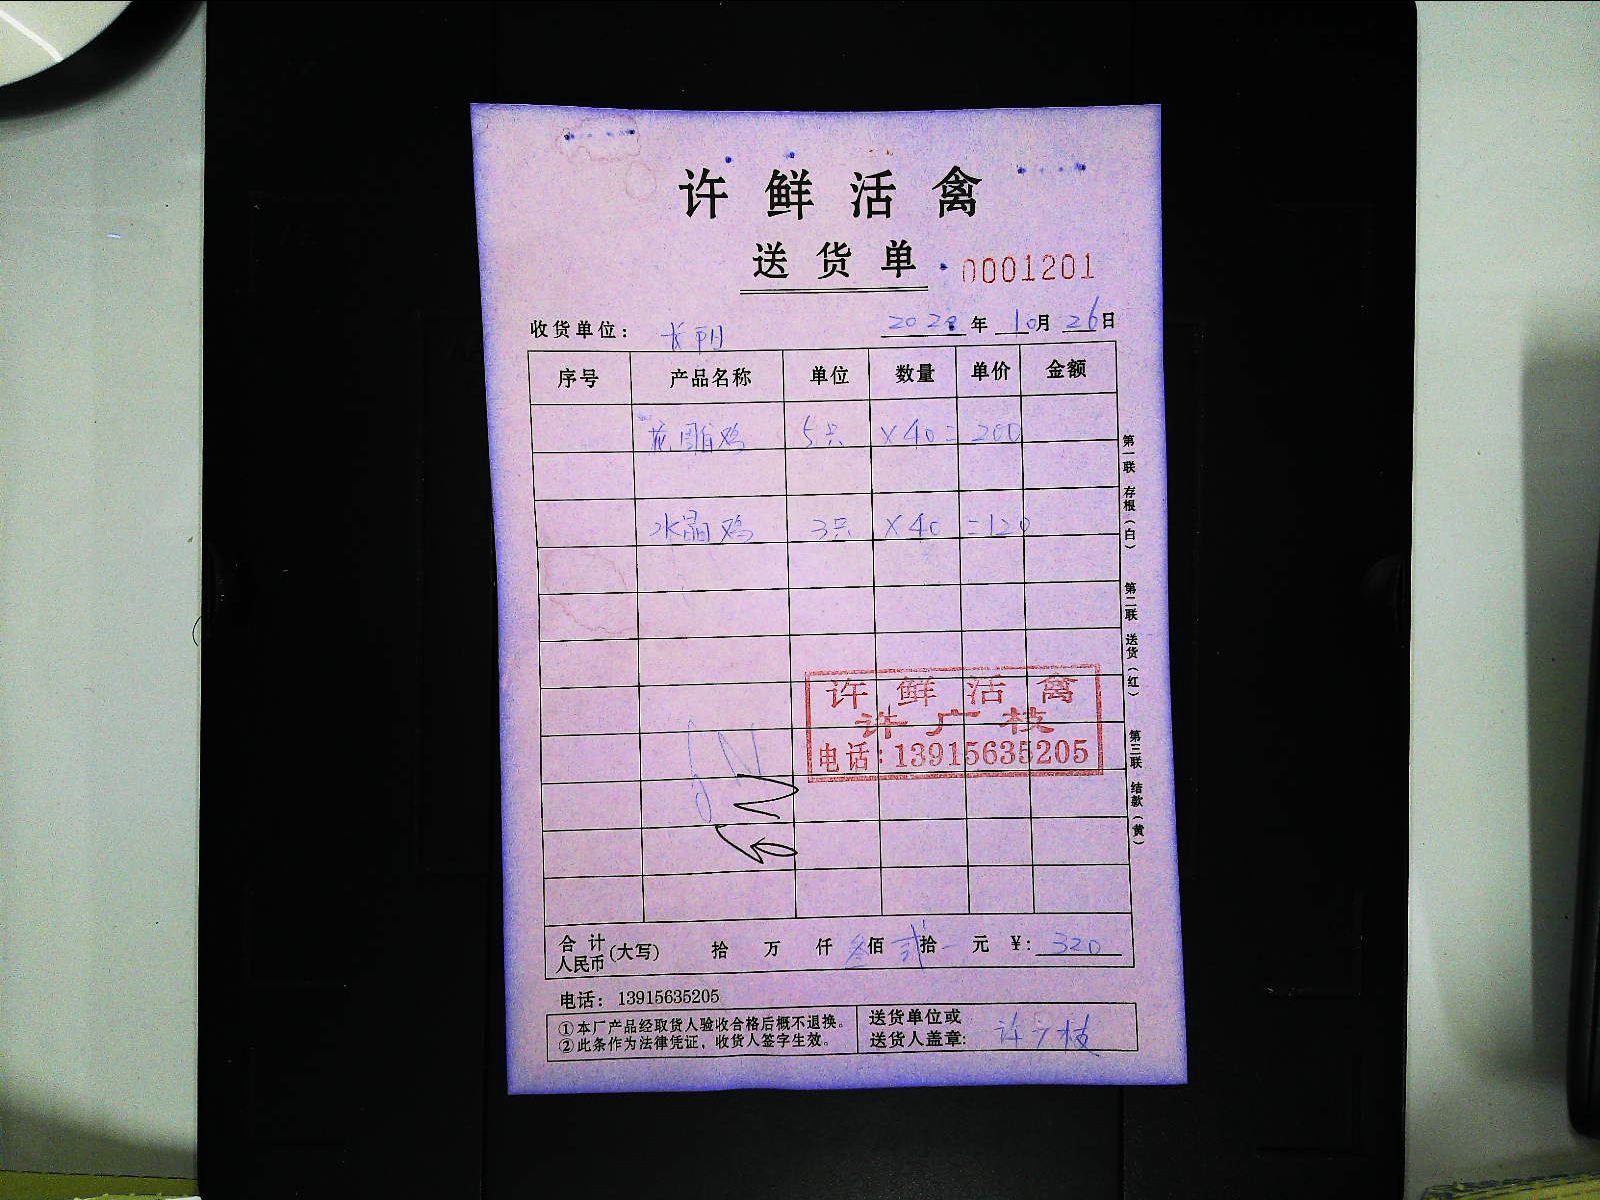 许鲜活禽
送货单 0001201
收货单位： 长朋 2020年 10月 26日
序号 产品名称 单位 数量 单价 金额
花雕鸡 5只 ×40= 200
水晶鸡 3只 ×40 =120
许鲜活禽
许广枝
电话：13915635205
合计人民币(大写) 拾 万 仟 叁佰 贰拾 元 ¥： 320
电话： 13915635205
①本厂产品经取货人验收合格后概不退换。
②此条作为法律凭证，收货人签字生效。
送货单位或
送货人盖章: 许广枝
第一联 存根（白）
第二联 送货（红）
第三联 结款（黄）